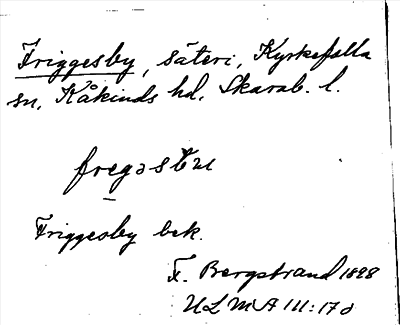 Friggesby, säteri, Kyrkefalla
sn, Kåkinds hd, Skarab. l.
Friggesby bek.
F. Bergstrand 1898
ULMA 111:17